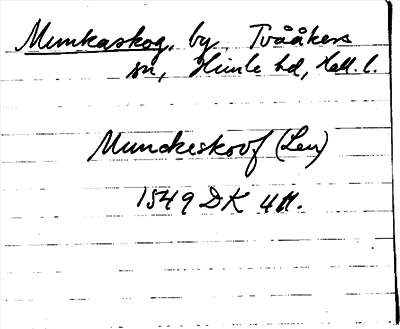 Munkaskog, by, Tvååkers
sn, Himle hd, Hall. l.
Munckeskovf (Len)
1549 DK 4H.